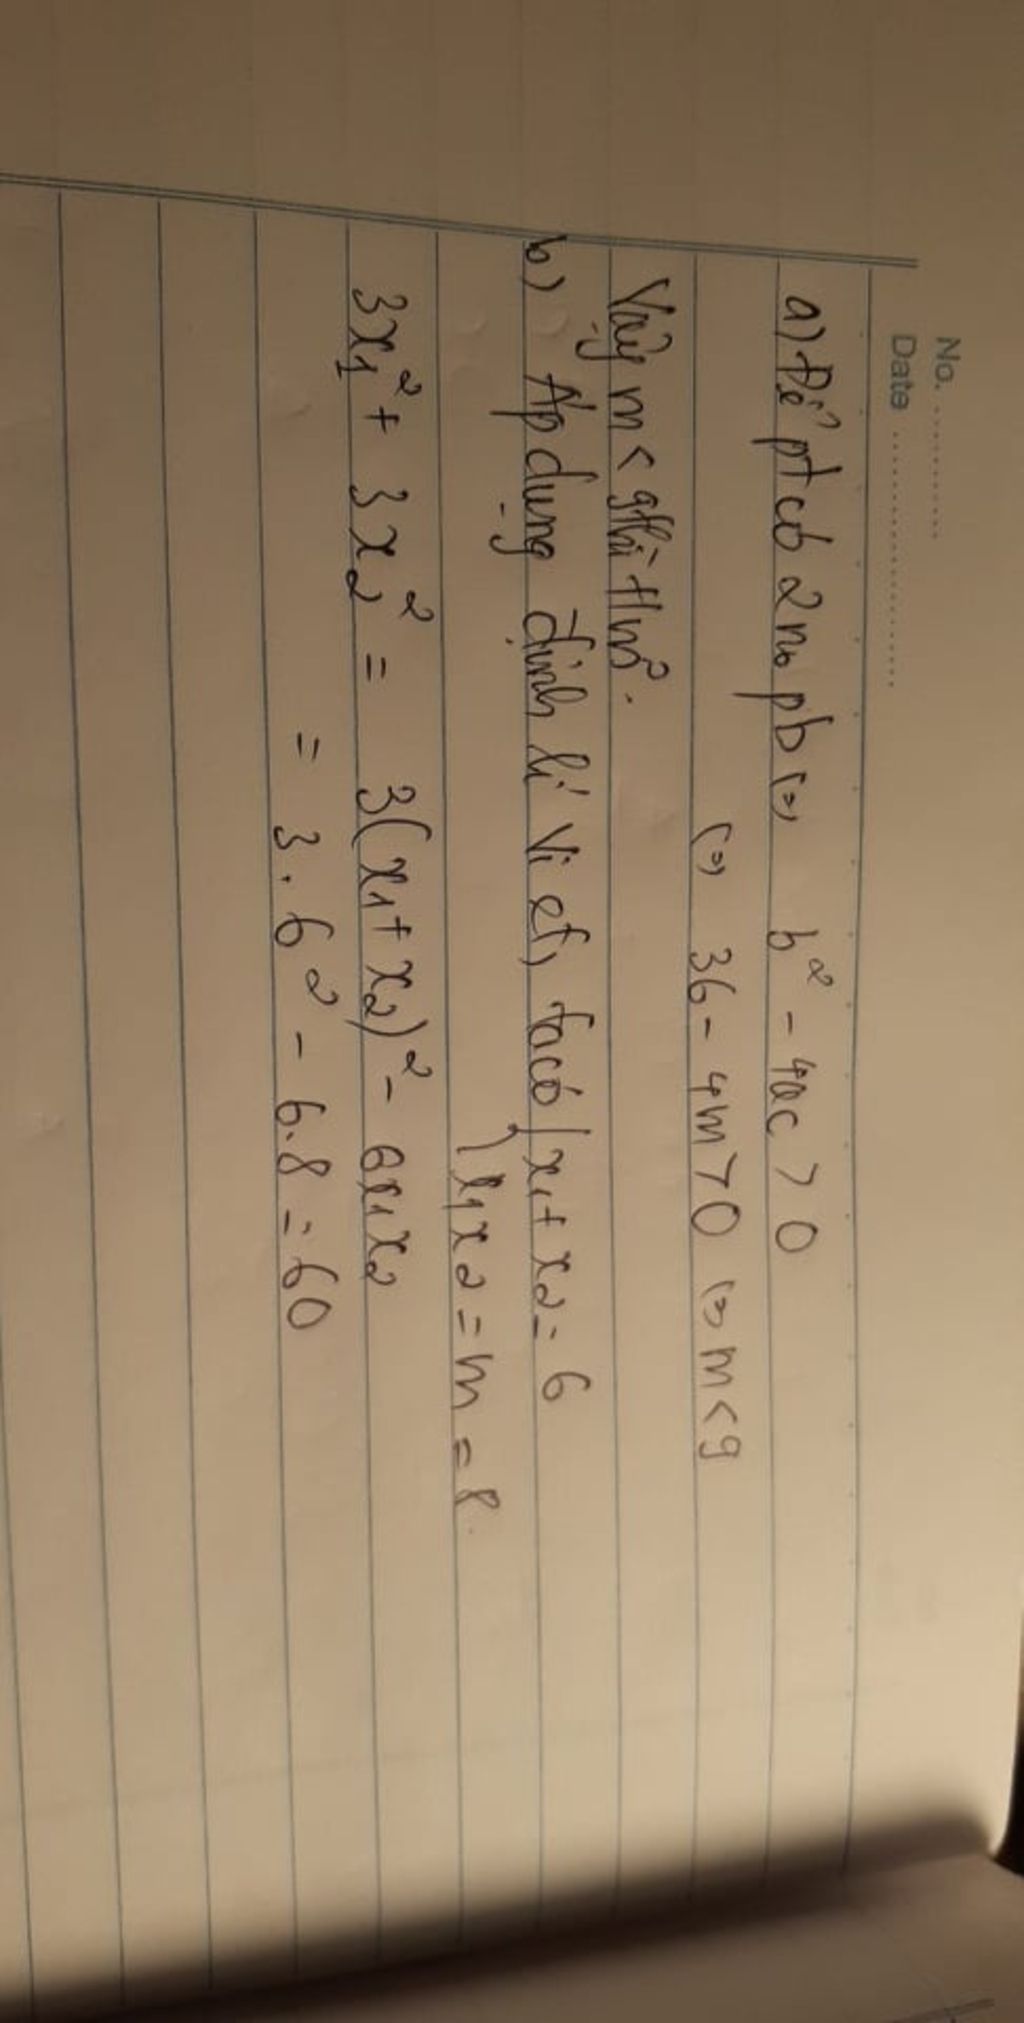 No. ............
Date ........................
a) Để pt có 2 no pb (=) b² - 4ac > 0
(=) 36 - 4m > 0 (=) m < 9
Vậy m < 9 thì
b) Áp dụng định lí Vi et, ta có { x₁ + x₂ = 6
x₁x₂ = m = 8
3x₁² + 3x₂² = 3(x₁ + x₂)² - 6x₁x₂
= 3.6² - 6.8 = 60